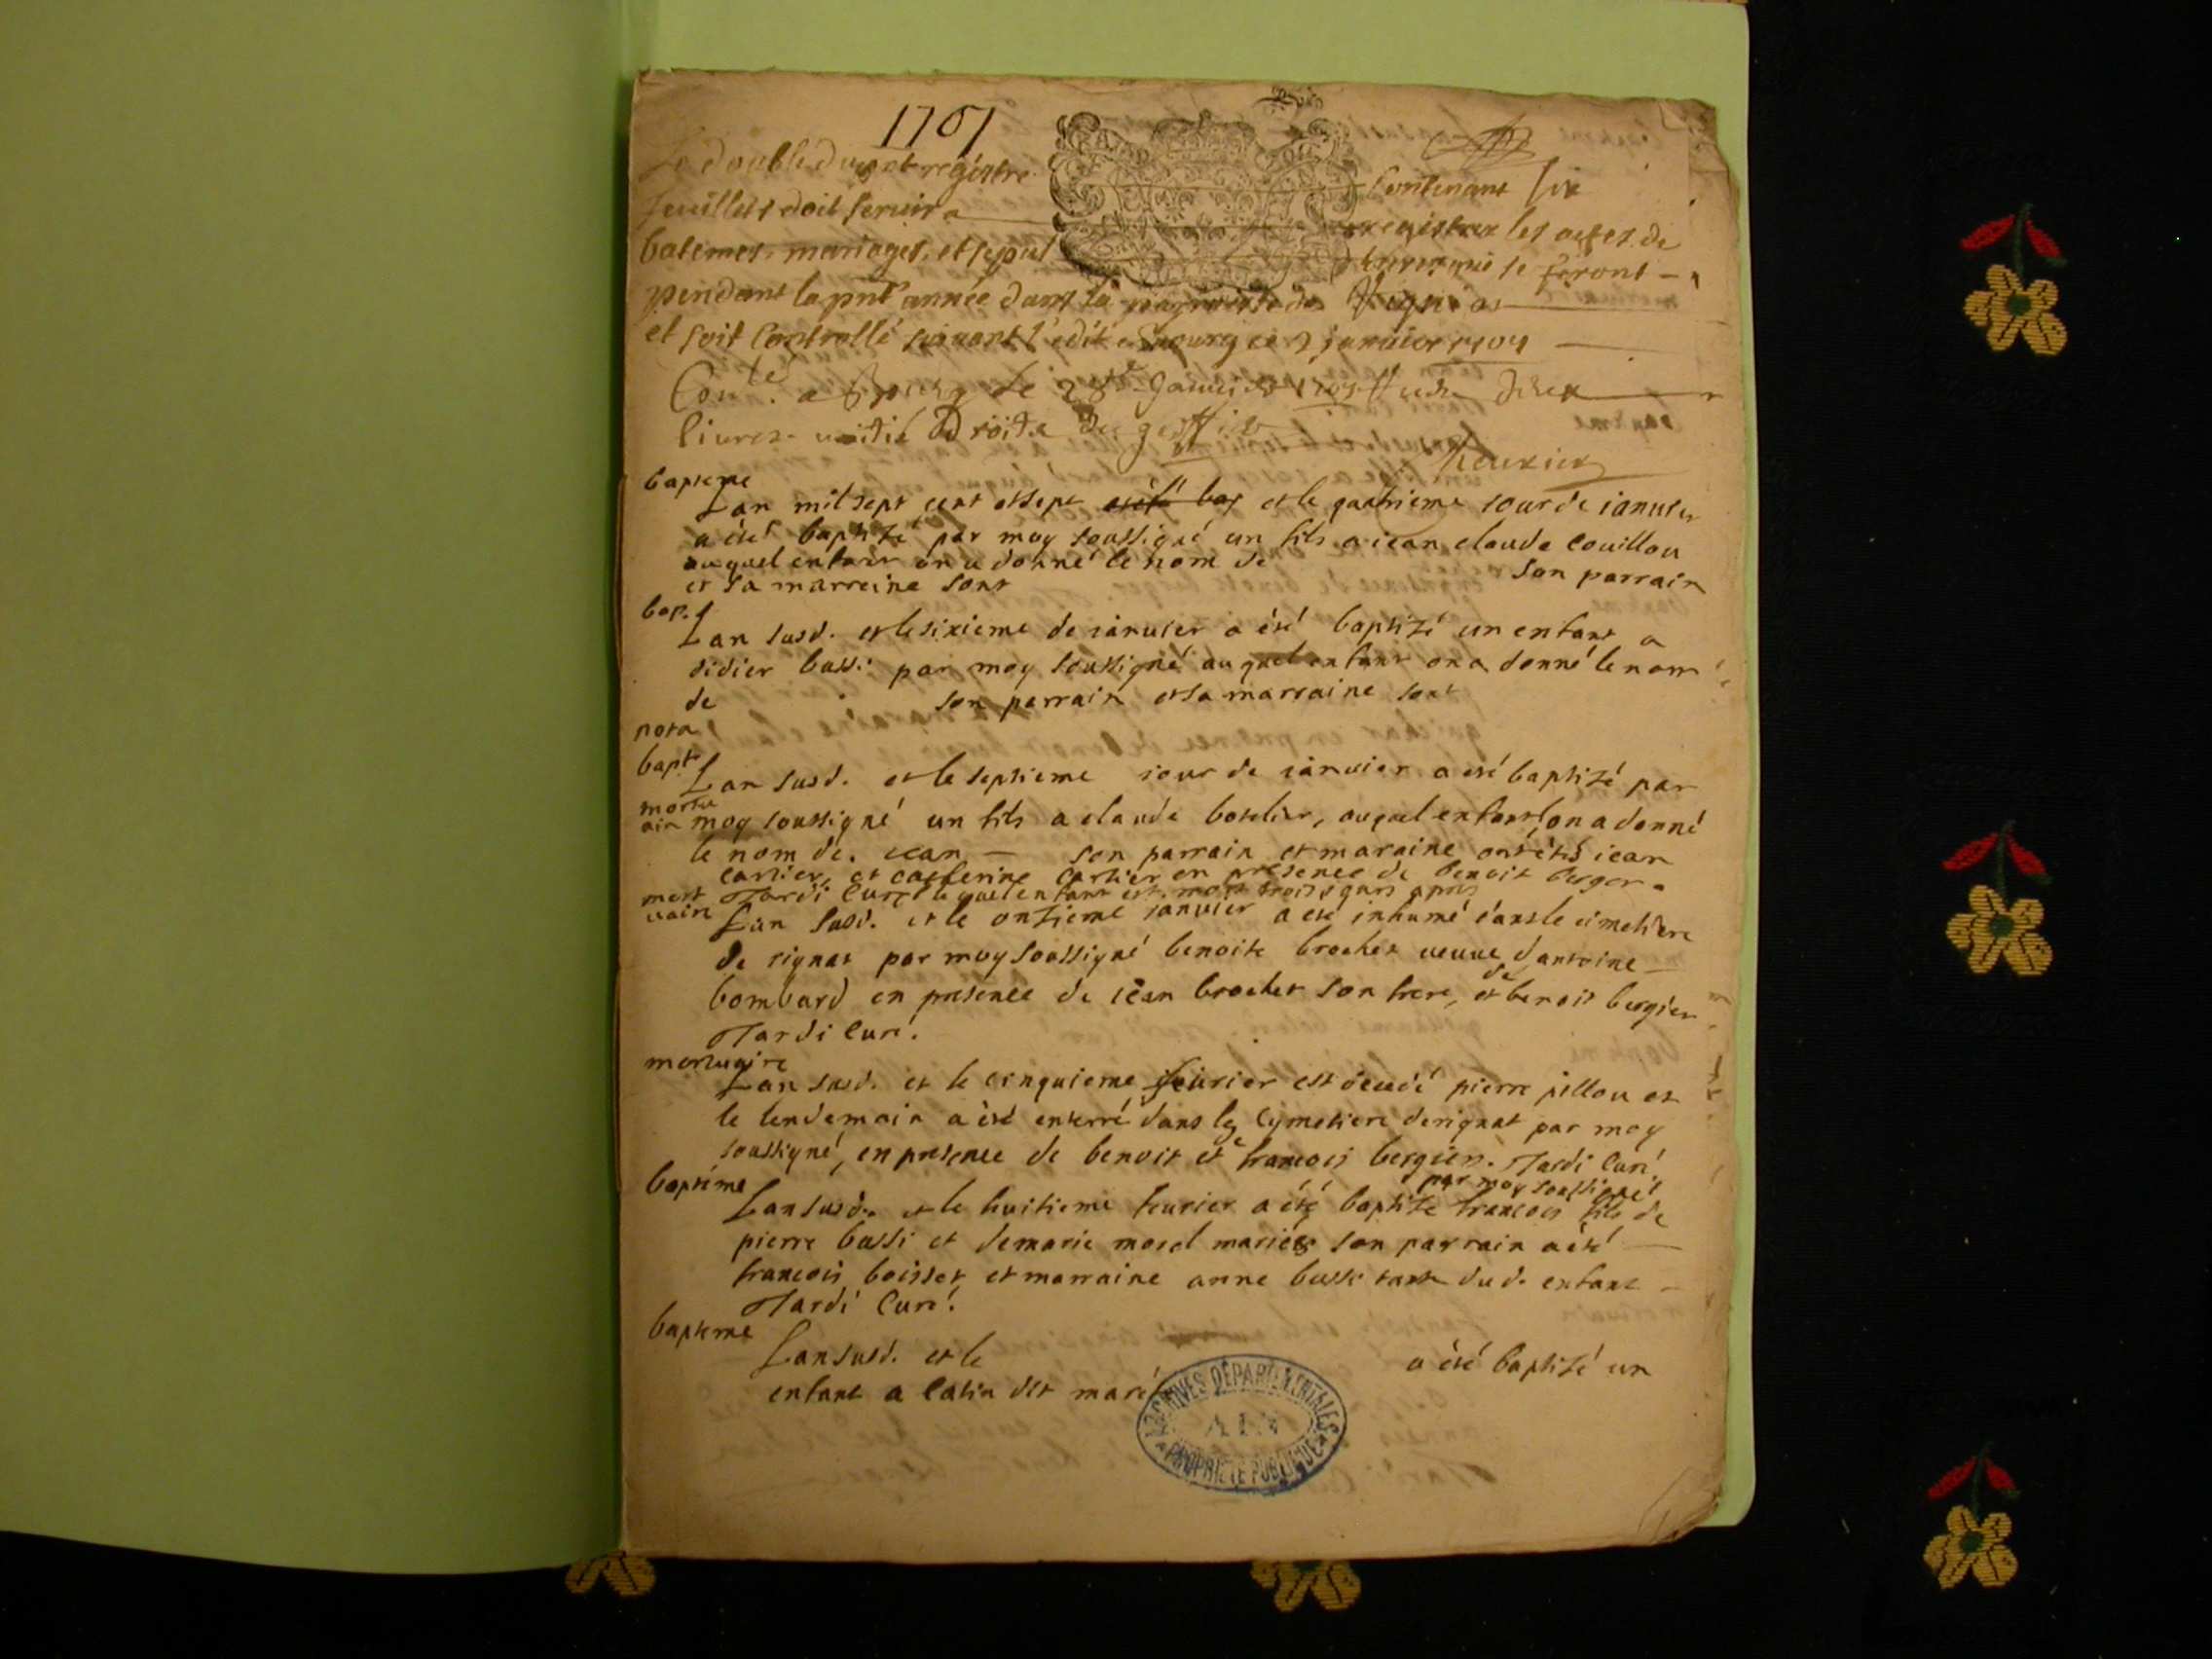 1707
Le double du pnt regістre contenant six
feuillets doit servir a registrer les actes de
batemes, mariages, et sepultures qui se feront
pendant la pnte année dans la parroisse de Rignat
et soit controllé suivant l'édit a Bourg ce janvier 1707
Conle. a Bourg le 28e Janvier 1707
livres
bapteme
Lan mil sept cent et sept et le quatrieme iour de ianvier
a été baptizé par moy soussigné un fils a iean claude couillou
auquel enfant on a donné le nom de son parrain
et sa marreine sont
bap.
Lan susd. et le sixieme de ianvier a été baptizé un enfant a
didier bussi par moy soussigné auquel enfant on a donné le nom
de son parrain et sa marraine sont
nota
bapt.
Lan susd. et le septieme iour de ianvier a été baptizé par
mortu
air moy soussigné un fils a claude botelier, auquel enfant on a donné
le nom de. iean — son parrain et maraine ont étés iean
carlier, et catherine carlier en presence de benoit berger.
Tardi Curé lequel enfant est mort trois jours apres
mort
uaire Lan susd. et le onzieme ianvier a été inhumé dans le cimetiere
de rignat par moy soussigné benoite brochet veuve d'antoine
bombard en presence de iean brochet son frere, et de benoit bergier
Tardi Curé.
mortuaire
Lan susd. et le cinquieme feurier est decedé pierre pillou et
le lendemain a été enterré dans le cymetiere de rignat par moy
soussigné, en presence de benoit et francois bergier. Tardi Curé.
bapteme par moy soussigné
Lan susd. et le huitieme feurier a été baptizé francois fils de
pierre bussi et de marie morel mariés son parrain a été
francois boisset, et marraine anne bussi tante dud. enfant
Tardi Curé.
bapteme
Lan susd. et le a été baptizé un
enfant a
ARCHIVES DÉPARTEMENTALES
AIN
PROPRIÉTÉ PUBLIQUE